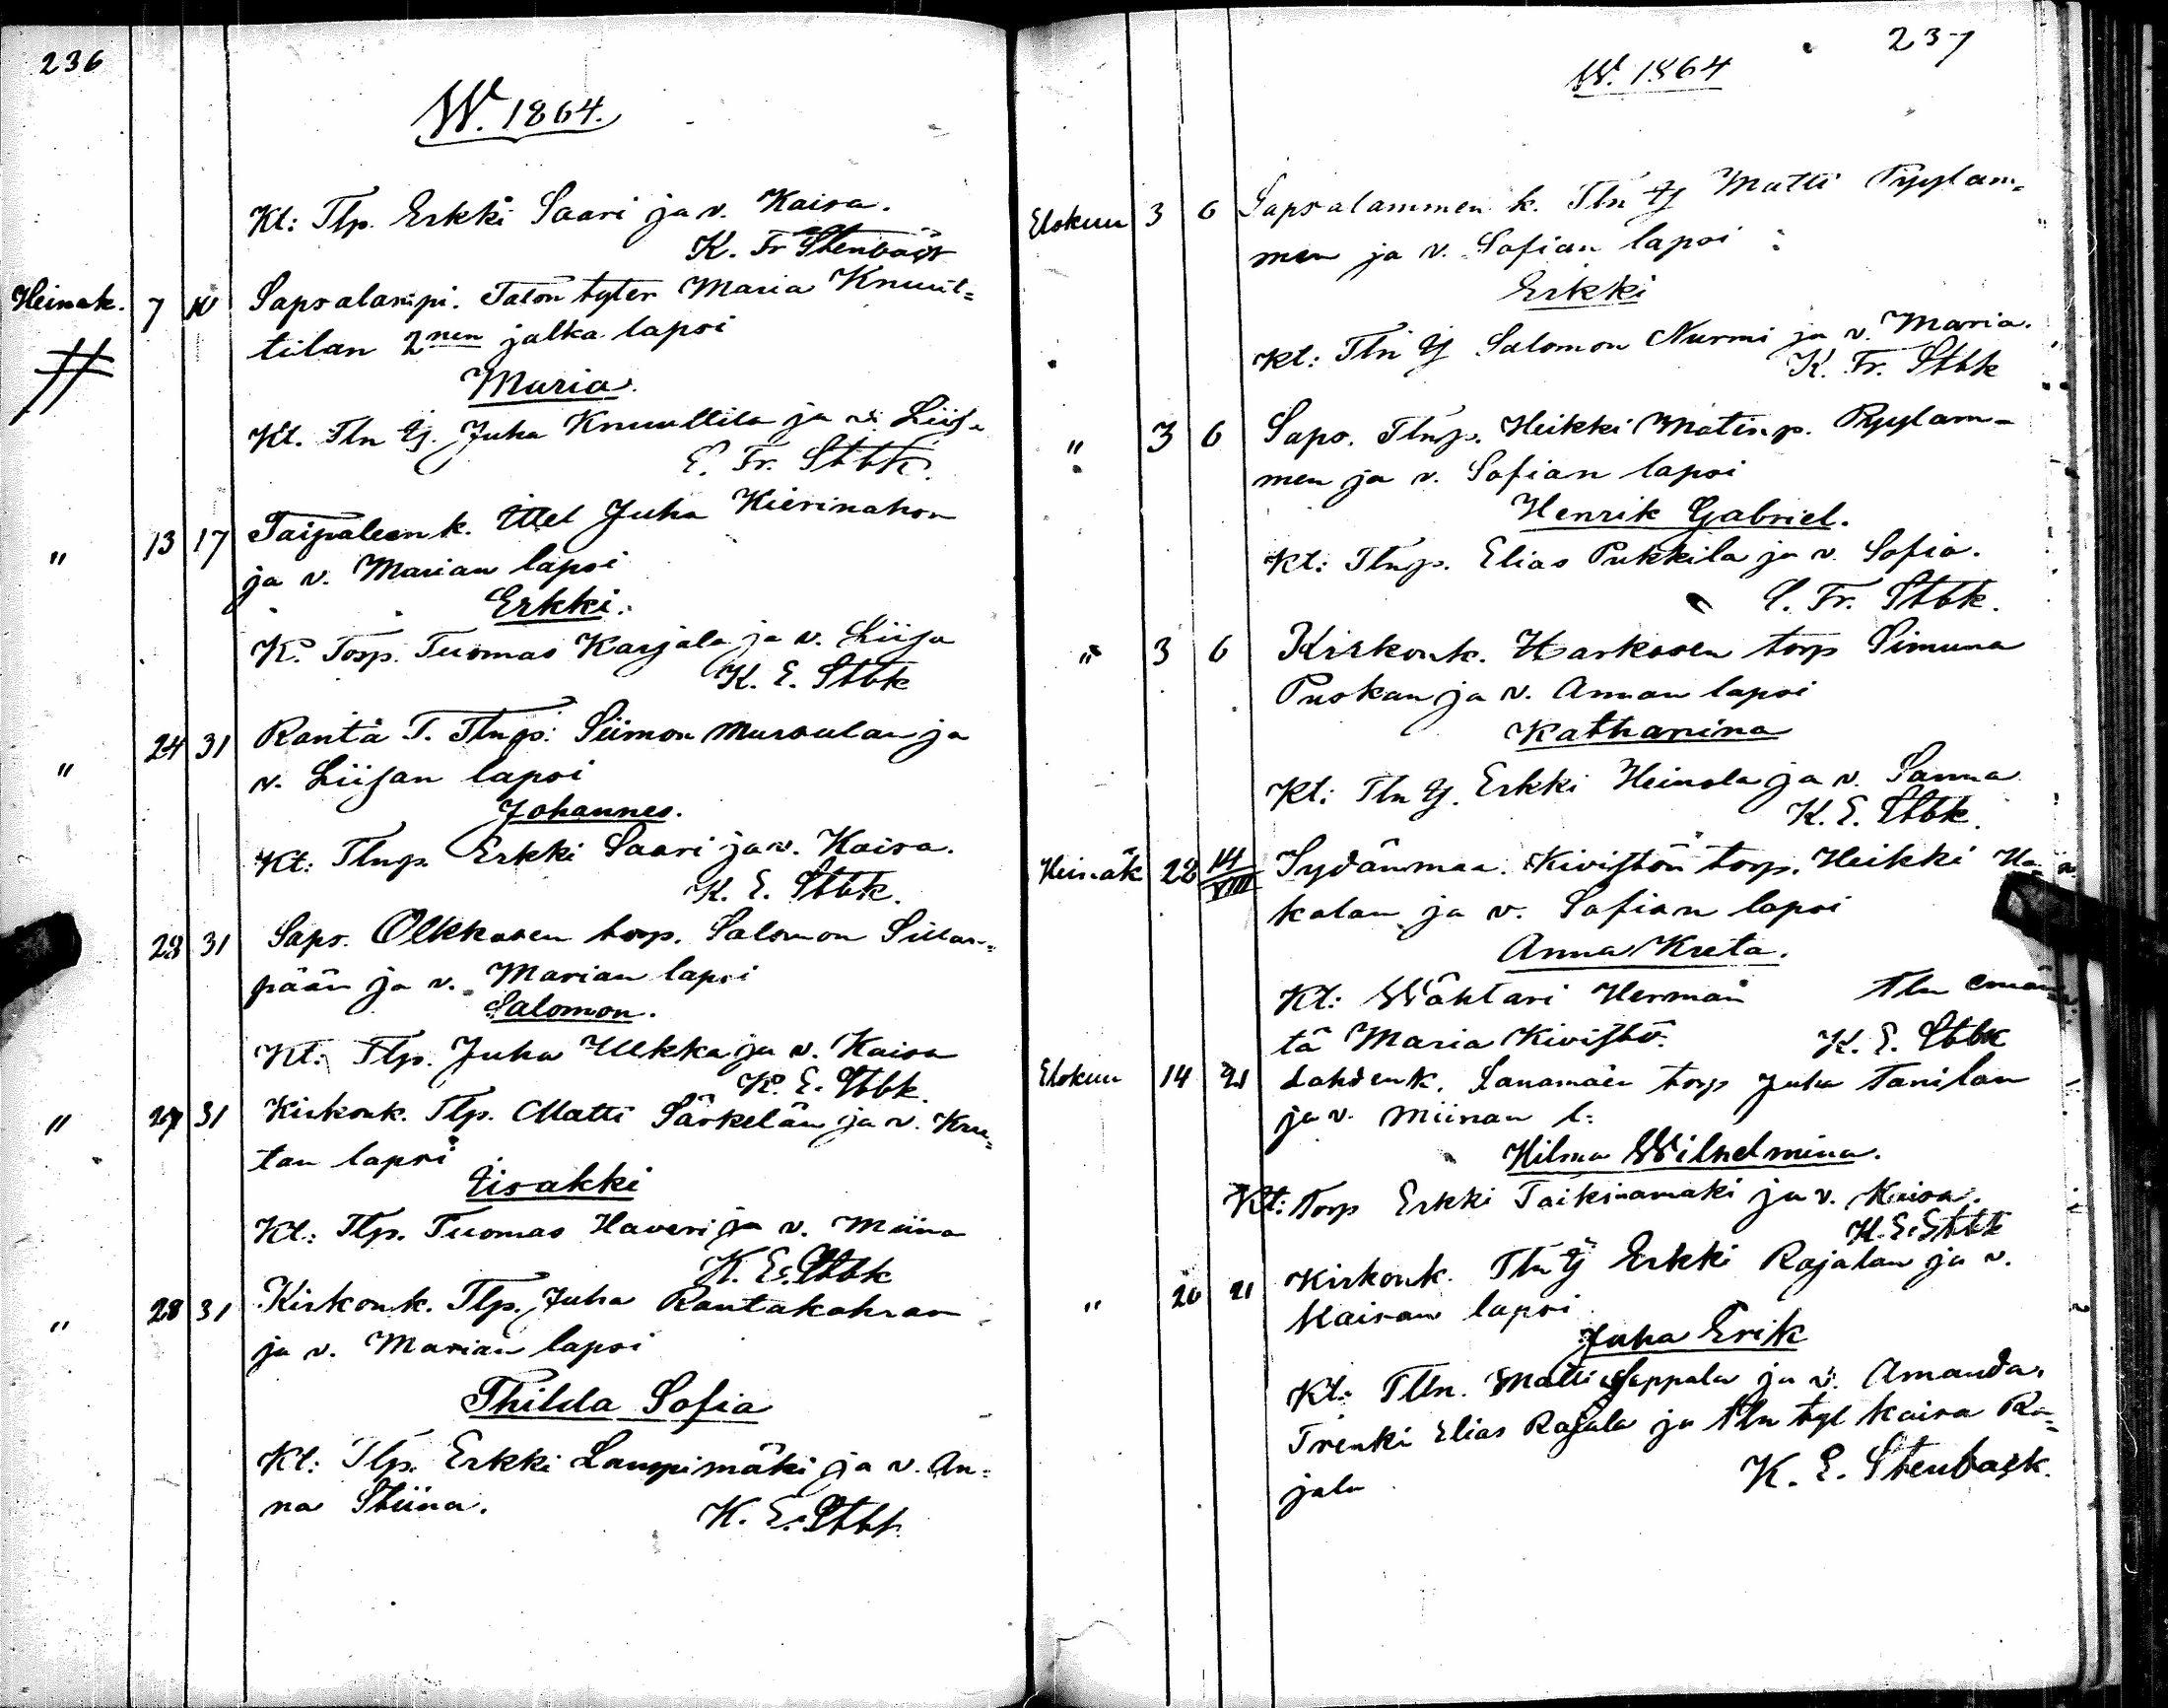 236
W. 1864.
Kt: Tlp. Erkki Saari ja v. Kaisa.
K. Fr Stenbäck
Heinäk. 7 10 Sapsalampi. Talon tytär Maria Knuut=
tilan 2nen jalka lapsi
Maria.
Kt. Tln Ij. Juha Knuuttila ja v. Liisa
E. Fr. Stbk.
" 13 17 Taipaleen k. Itlel Juha Kierinahon
ja v. Marian lapsi
Erkki.
K. Torp. Tuomas Karjala ja v. Liisa
K. E. Stbk
" 24 31 Ranta T. Tlnp: Siimon Mursulan ja
v. Liisan lapsi
Johannes.
Kt: Tlnp. Erkki Saari ja v. Kaisa.
K. E. Stbk.
28 31 Saps. Olkkosen torp. Salomon Sillan=
pään ja v. Marian lapsi
Salomon.
Kt: Tlp. Juha Ulkka ja v. Kaisa
K. E. Stbk.
" 27 31 Kirkonk. Tlp. Matti Särkelän ja v. Kree=
tan lapsi
Iisakki
Kt: Tlp. Tuomas Haveri ja v. Miina
K. E. Stbk
" 28 31 Kirkonk. Tlp. Juha Rantakahran
ja v. Marian lapsi
Thilda Sofia
Kt: Tlp. Erkki Lampimäki ja v. An=
na Stiina.
K. E. Stbk.
237
W. 1864
Elokuu 3 6 Sapsalammen k. Tln Ij Matti Pyylam=
men ja v. Sofian lapsi :
Erkki
Kt: Tln Ij Salomon Nurmi ja v. Maria.
K. Fr. Stbk
" 3 6 Saps. Tlnp. Heikki Matinp. Pyylam=
men ja v. Sofian lapsi
Henrik Gabriel.
Kt: Tlnp. Elias Pukkila ja v. Sofia.
E. Fr. Stbk.
" 3 6 Kirkonk. Harkosen torp Simuna
Puskan ja v. Annan lapsi
Katharina
Kt: Tln Ij. Erkki Heinola ja v. Sanna
K. E. Stbk.
Heinäk 28 14/VIII Sydänmaa. Kivistön torp. Heikki
kalan ja v. Sofian lapsi
Anna Kreta.
Kt: Wähtari Herman Tln emän=
tä Maria Kivistö.
K. E. Stbk
Elokuu 14 21 Lahdenk. Lanamäen torp Juha Tanilan
ja v. Miinan l:
Hilma Wilhelmina.
Kt: Torp Erkki Taikinamäki ja v. Kaisa.
K. E. Stbk
" 20 21 Kirkonk. Tln Ij Erkki Rajalan ja v.
Kaisan lapsi
Juha Erik
Kt: Tlln. Matti Seppala ja v. Amanda.
Trenki Elias Rajala ja tln tyt Kaisa Ra=
jala
K. E. Stenback.